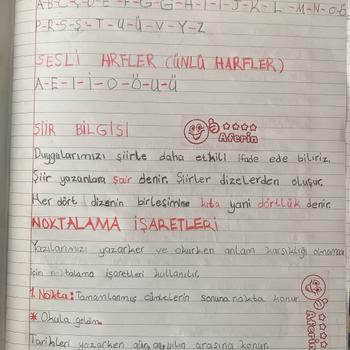 A-B-C-Ç-D-E-F-G-Ğ-H-I-İ-J-K-L-M-N-O-Ö
P-R-S-Ş-T-U-Ü-V-Y-Z
SESLİ HARFLER (ÜNLÜ HARFLER)
A-E-I-İ-O-Ö-U-Ü
ŞİİR BİLGİSİ
Aferin
Duygularımızı şiirle daha etkili ifade ede biliriz.
Şiir yazanlara şair denir. Şiirler dizelerden oluşur.
Her dört dizenin birleşimine kıta yani dörtlük denir.
NOKTALAMA İŞARETLERİ
Yazılarımızı yazarken ve okurken anlam karşıklığı olmaması
için noktalama işaretleri kullanılır.
1. Nokta: Tamamlanmış cümlelerin sonuna nokta konur.
* Okula geldim.
Aferin
Tarihleri yazarken gün, ay, yılın arasına konur.